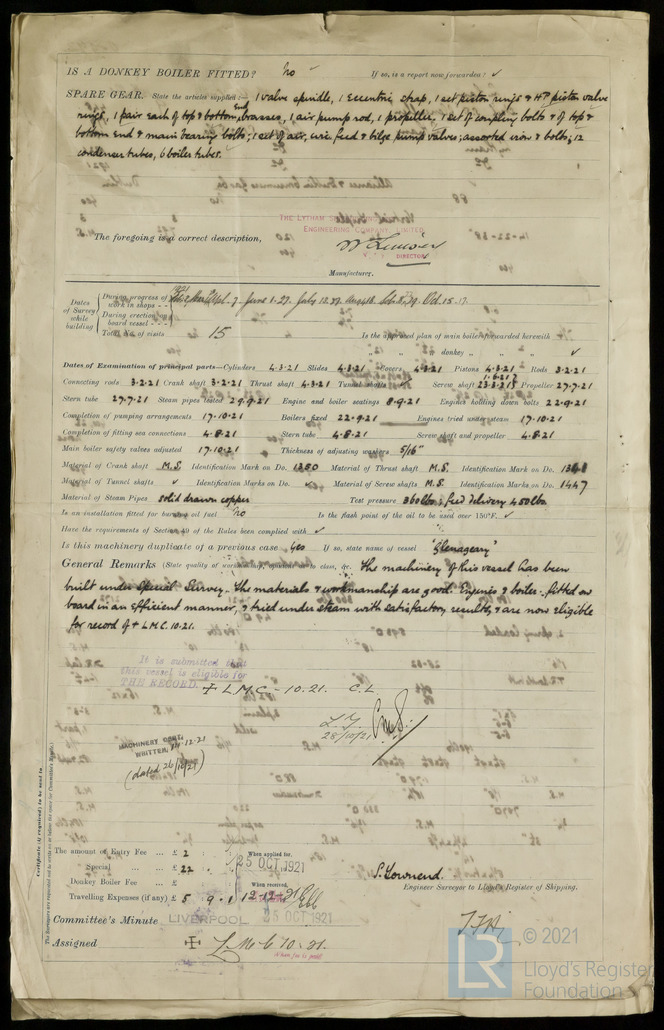 IS A DONKEY BOILER FITTED? No If so, is a report now forwarded? ✓
SPARE GEAR. State the articles supplied:— 1 valve spindle, 1 Eccentric strap, 1 set piston rings & HP piston valve
rings, 1 pair each of top & bottom End brasses, 1 air pump rod, 1 propeller, 1 set of coupling bolts & of top &
bottom end & main bearing bolts; 1 set of air, circ feed & bilge pump valves; assorted iron & bolts; 12
condenser tubes, 6 boiler tubes.
THE LYTHAM
ENGINEERING COMPANY LIMITED
The foregoing is a correct description,
DIRECTOR
Manufacturer.
Dates of Survey while building
During progress of work in shops - - 1921 7. June 1-27. July Oct. 15-17.
During erection on board vessel - - -
Total No. of visits 15 Is the approved plan of main boiler forwarded herewith
" " " donkey " " " ✓
Dates of Examination of principal parts—Cylinders 4.3.21 Slides 4.3.21 Covers 4.3.21 Pistons 4.3.21 Rods 3.2.21
Connecting rods 3.2.21 Crank shaft 3.2.21 Thrust shaft 4.3.21 Tunnel shafts ✓ Screw shaft Propeller 27.7.21
Stern tube 27.7.21 Steam pipes tested 29.9.21 Engine and boiler seatings 8.9.21 Engines holding down bolts 22.9.21
Completion of pumping arrangements 17.10.21 Boilers fixed 22.9.21 Engines tried under steam 17.10.21
Completion of fitting sea connections 4.8.21 Stern tube 4.8.21 Screw shaft and propeller 4.8.21
Main boiler safety valves adjusted 17.10.21 Thickness of adjusting washers 5/16"
Material of Crank shaft M.S. Identification Mark on Do. 1380 Material of Thrust shaft M.S. Identification Mark on Do.
Material of Tunnel shafts ✓ Identification Marks on Do. ✓ Material of Screw shafts M.S. Identification Marks on Do. 1447
Material of Steam Pipes solid drawn copper Test pressure 360 lbs; feed delivery 450 lbs
Is an installation fitted for burning oil fuel No Is the flash point of the oil to be used over 150°F. ✓
Have the requirements of Section 49 of the Rules been complied with ✓
Is this machinery duplicate of a previous case Yes If so, state name of vessel "Glenageary"
General Remarks (State quality of workmanship, opinions as to class, &c. The machinery of this vessel has been
built under Special Survey. The materials & workmanship are good. Engines & boiler fitted on
board in an efficient manner, & tried under steam with satisfactory results, & are now eligible
for record of + L.M.C. 10.21.
It is submitted that
this vessel is eligible for
THE RECORD. + L.M.C - 10.21. C.L
28/10/21
MACHINERY CERT.
WRITTEN 12.21
(dated 26/10/21)
Certificate (if required) to be sent to
The Surveyors are requested not to write on or below the space for Committee's Minute.
The amount of Entry Fee ... £ 2 : When applied for,
Special ... ... £ 22 : 25 OCT. 1921
Donkey Boiler Fee ... £ : When received,
Travelling Expenses (if any) £ 5 : 9 : 1 12.12.21
S. Townend.
Engineer Surveyor to Lloyd's Register of Shipping.
Committee's Minute LIVERPOOL 25 OCT 1921
Assigned + L.M.C 10.21.
© 2021
Lloyd's Register
Foundation